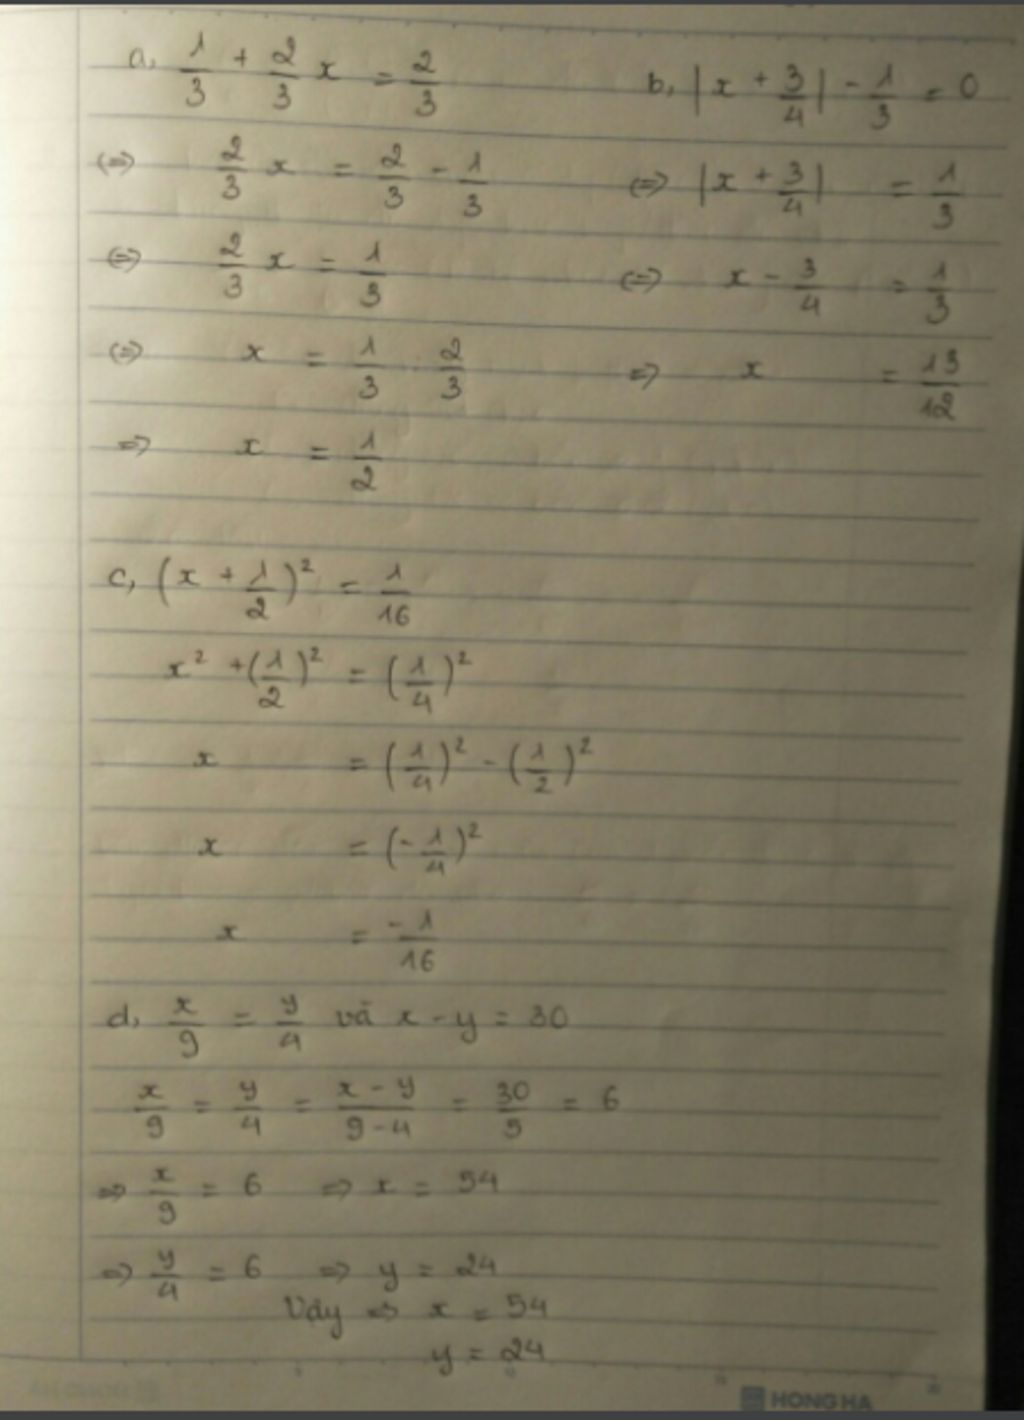 a, 1/3 + 2/3 x = 2/3
(=) 2/3 x = 2/3 - 1/3
(=) 2/3 x = 1/3
(=) x = 1/3 . 2/3
=> x = 1/2
b, |x + 3/4| - 1/3 = 0
(=) |x + 3/4| = 1/3
(=) x - 3/4 = 1/3
=> x = 13/12
c, (x + 1/2)² = 1/16
x² + (1/2)² = (1/4)²
x = (1/4)² - (1/2)²
x = (-1/4)²
x = -1/16
d, x/9 = y/4 và x - y = 30
x/9 = y/4 = (x - y)/(9 - 4) = 30/5 = 6
=> x/9 = 6 => x = 54
=> y/4 = 6 => y = 24
Vậy => x = 54
y = 24
HONG HA